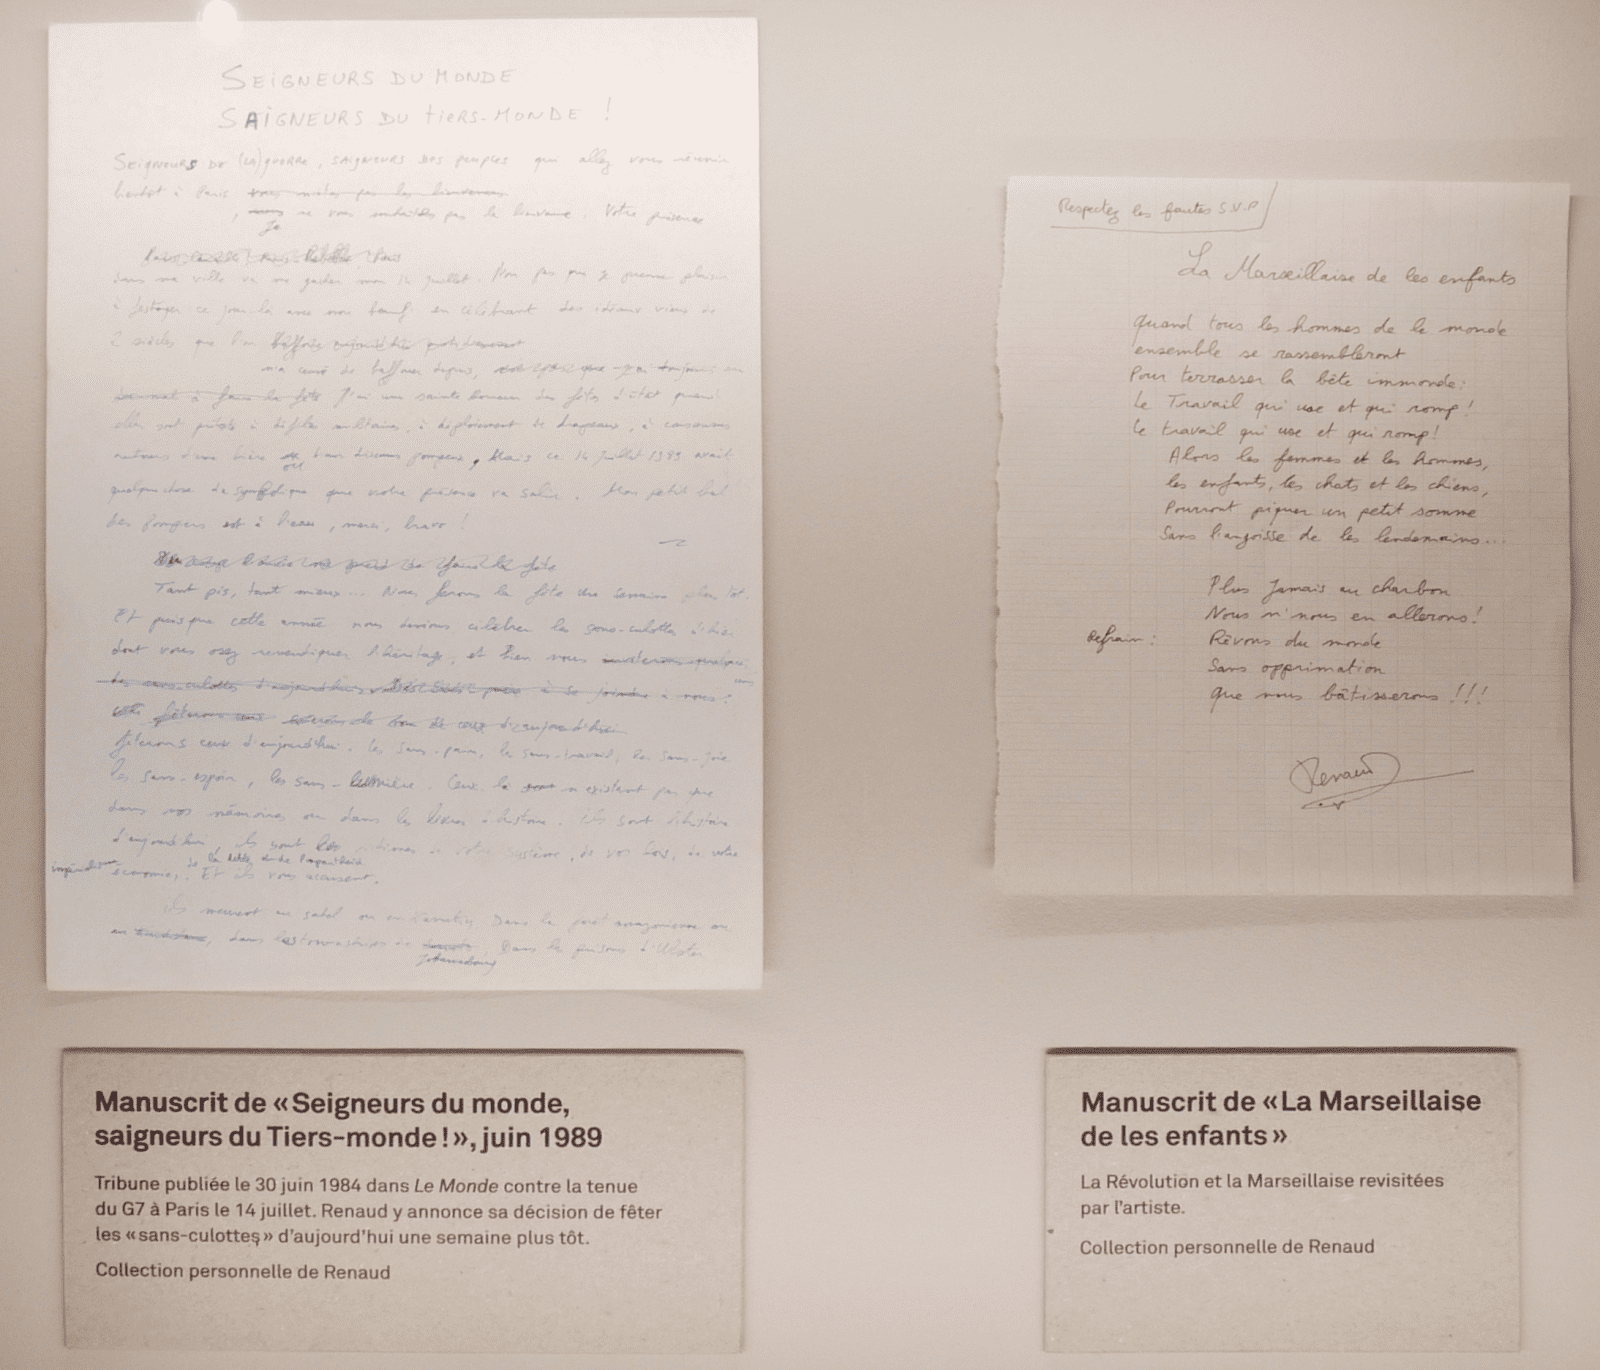 SEIGNEURS DU MONDE
SAIGNEURS DU TIERS-MONDE !
SEIGNEURS DE (LA) guerre, SAIGNEURS DES peuples qui allez vous réunir
bientôt à Paris
, ne vous souhaite pas la bienvenue. Votre présence
Je
dans ma ville va me gâcher mon 14 juillet. Non pas que je prenne plaisir
à festoyer ce jour-là avec mon beauf en célébrant des idéaux vieux de
2 siècles que l'on bafoués aujourd'hui quotidiennement
n'a cessé de bafouer depuis,
J'ai une sainte horreur des fêtes d'état quand
elles sont prétexte à défilés militaires, à déploiement de drapeaux, à
autour d'une bière ou d'un discours pompeux, Mais ce 14 juillet 1989 avait
quelque chose de symbolique que votre présence va salir. Mon petit bal
des pompiers est à l'eau, merci, bravo !
Tant pis, tant mieux... Nous ferons la fête une semaine plus tôt.
Et puisque cette année nous devions célébrer les sans-culottes d'hier
dont vous osez revendiquer l'héritage, et bien nous
des sans-culottes d'aujourd'hui à se joindre à nous ?
fêterons ceux d'aujourd'hui. Les sans-pain, les sans-travail, les sans-joie
les sans-espoir, les sans-lumière. Ceux-là n'existent pas que
dans nos mémoires ou dans les livres d'histoire. Ils sont l'histoire
d'aujourd'hui, ils sont les victimes de votre système, de vos lois, de votre
de la dette et de l'apartheid
économie,. Et ils vous accusent.
Ils meurent au sahel ou Dans la forêt amazonienne ou
au , dans les townships de . Dans les prisons d'Ulster
Johannesbourg
Respectez les fautes S.V.P
La Marseillaise de les enfants
Quand tous les hommes de le monde
ensemble se rassembleront
Pour terrasser la bête immonde :
Le Travail qui use et qui romp !
Le travail qui use et qui romp !
Alors les femmes et les hommes,
les enfants, les chats et les chiens,
Pourront piquer un petit somme
Sans l'angoisse de les lendemains...
Plus Jamais au charbon
Nous n'nous en allerons !
Refrain : Rêvons du monde
Sans opprimation
que nous bâtisserons !!!
Renaud
Manuscrit de « Seigneurs du monde,
saigneurs du Tiers-monde ! », juin 1989
Tribune publiée le 30 juin 1984 dans Le Monde contre la tenue
du G7 à Paris le 14 juillet. Renaud y annonce sa décision de fêter
les « sans-culottes » d'aujourd'hui une semaine plus tôt.
Collection personnelle de Renaud
Manuscrit de « La Marseillaise
de les enfants »
La Révolution et la Marseillaise revisitées
par l'artiste.
Collection personnelle de Renaud